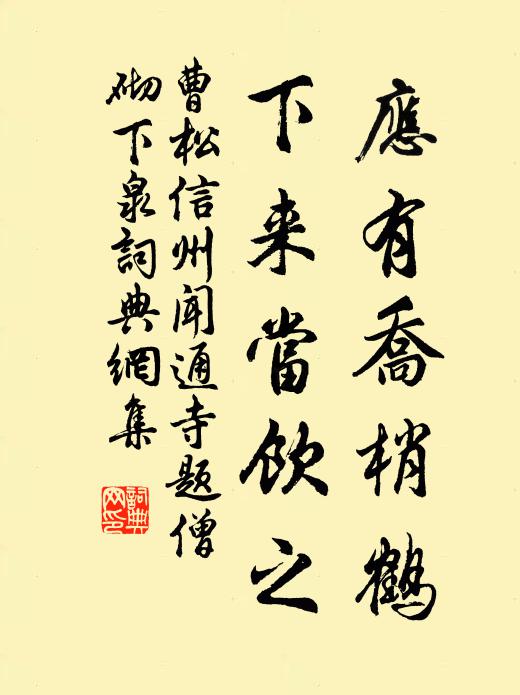 應有喬梢鶴
下来當飲之
曹松信州闻通寺题僧
砌下泉詞典網集
詞典
网印